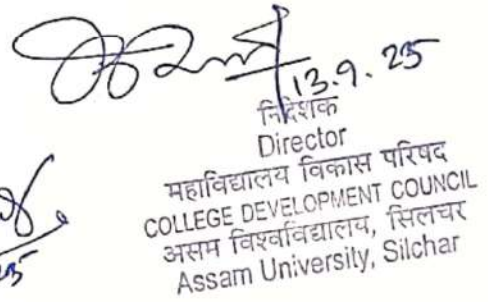 13.9.25
निदेशक
Director
महाविद्यालय विकास परिषद
COLLEGE DEVELOPMENT COUNCIL
असम विश्वविद्यालय, सिलचर
Assam University, Silchar